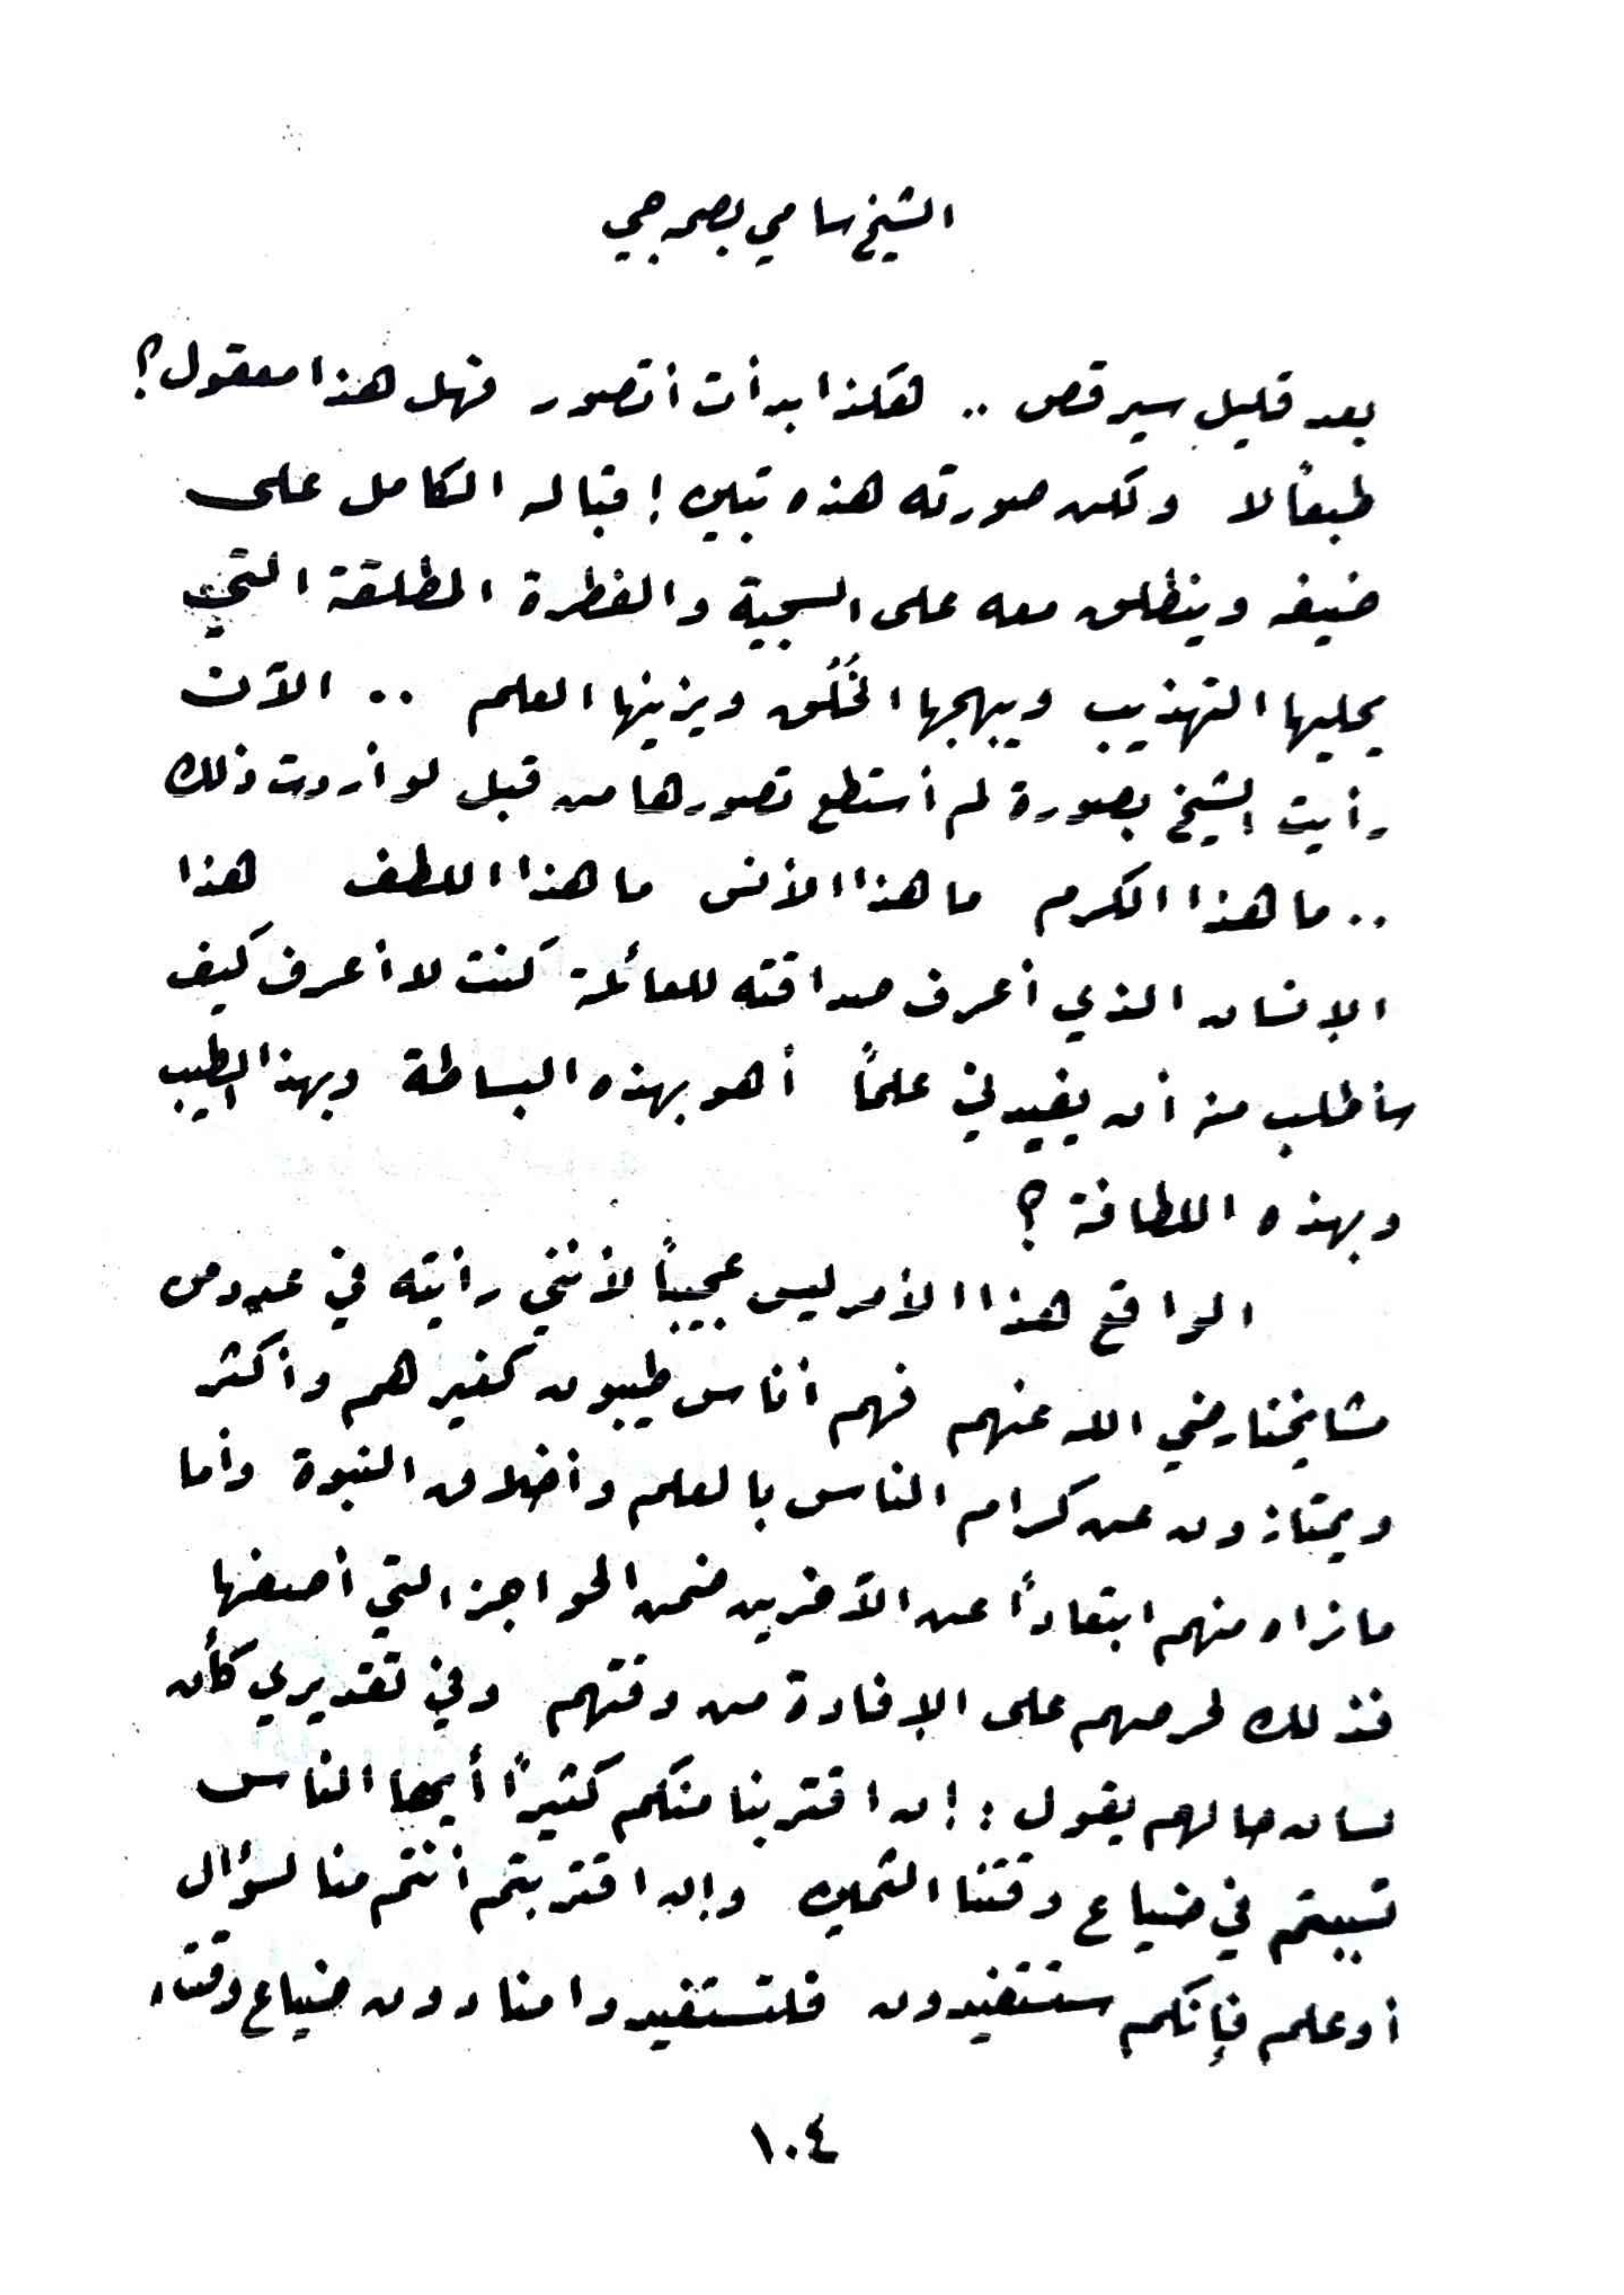 الشيخ سامي بصمه جي
بعد قليل سيرقص .. هكذا بدأت أتصور فهل هذا معقول؟
طبعاً لا ولكن صورته هذه تبين إقباله الكامل على
ضيفه وينطلق معه على السجية والفطرة المطلقة التي
يحليها التهذيب ويبهجها الخُلُق ويزينها العلم .. الآن
رأيت الشيخ بصورة لم أستطع تصورها من قبل لو أردت ذلك
.. ما هذا الكرم ما هذا الأنس ما هذا اللطف هذا
الإنسان الذي أعرف صداقته للعائلة كنت لا أعرف كيف
سأطلب منه أن يفيدني علماً أهو بهذه البساطة وبهذا الطيب
وبهذه اللطافة ؟
الواقع هذا الأمر ليس عجيباً لأنني رأيته في عدد من
مشايخنا رضي الله عنهم فهم أناس طيبون كغيرهم وأكثر
ويمتازون عن كرام الناس بالعلم وأخلاق النبوة وأما
ما نراه منهم ابتعاداً عن الآخرين ضمن الحواجز التي أصفها
فذلك لحرصهم على الإفادة من وقتهم وفي تقديري كأن
لسان حالهم يقول : إن اقتربنا منكم كثيراً أيها الناس
تسببتم في ضياع وقتنا الثمين وإن اقتربتم أنتم منا لسؤال
أو علم فإنكم ستستفيدون فلتستفيدوا منا دون ضياع وقتنا
١٠٤